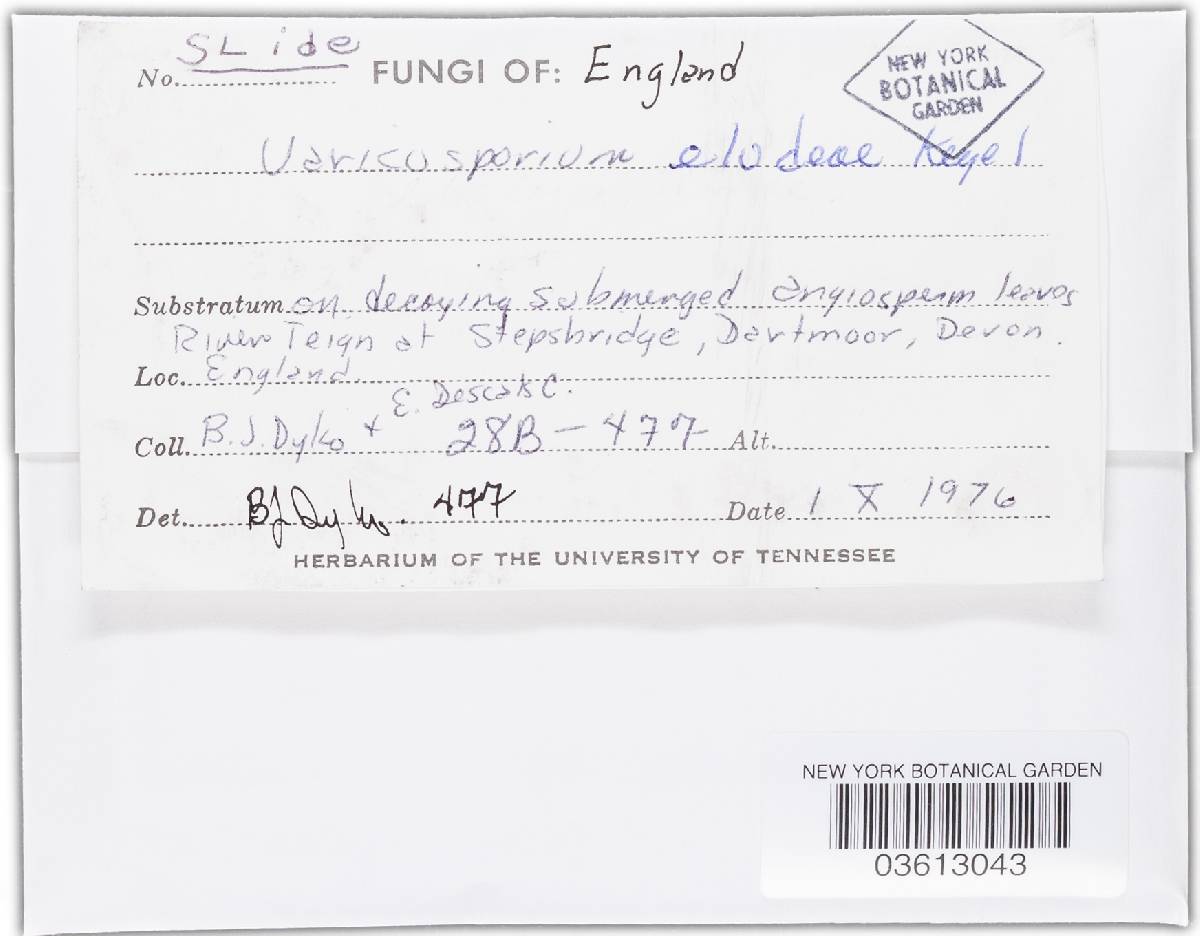 No. SLide FUNGI OF: England
NEW YORK
BOTANICAL
GARDEN
Varicosporium elodeae Kegel
Substratum on decaying submerged angiosperm leaves
River Teign at Stepsbridge, Dartmoor, Devon.
Loc. England.
Coll. B.J. Dyko + E. Descals C. 28B-477 Alt.
Det. BJ Dyko. 477 Date 1 X 1976
HERBARIUM OF THE UNIVERSITY OF TENNESSEE
NEW YORK BOTANICAL GARDEN
03613043